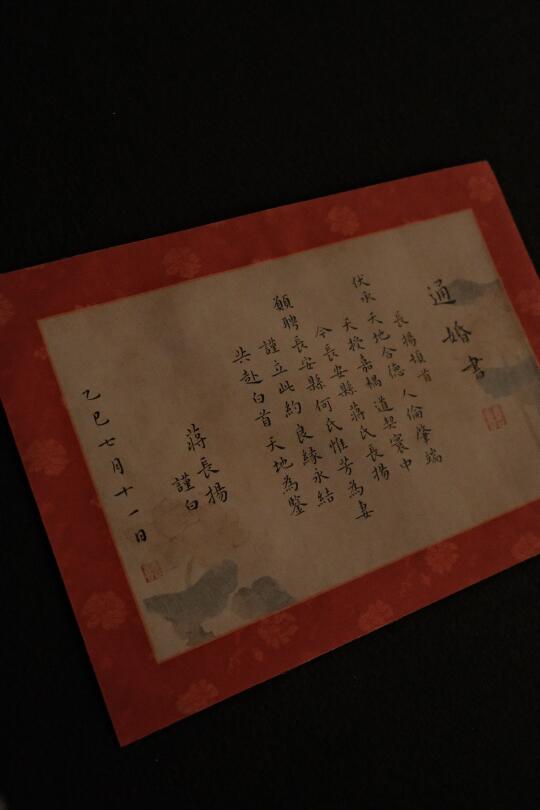 通婚書
長揚頓首
伏承天地合德 人倫肇端
天授嘉耦 道契寰中
今長安縣蔣氏長揚
願聘長安縣何氏惟芳為妻
謹立此約 良緣永結
共赴白首 天地為鑒
蔣長揚
謹白
乙巳七月十一日